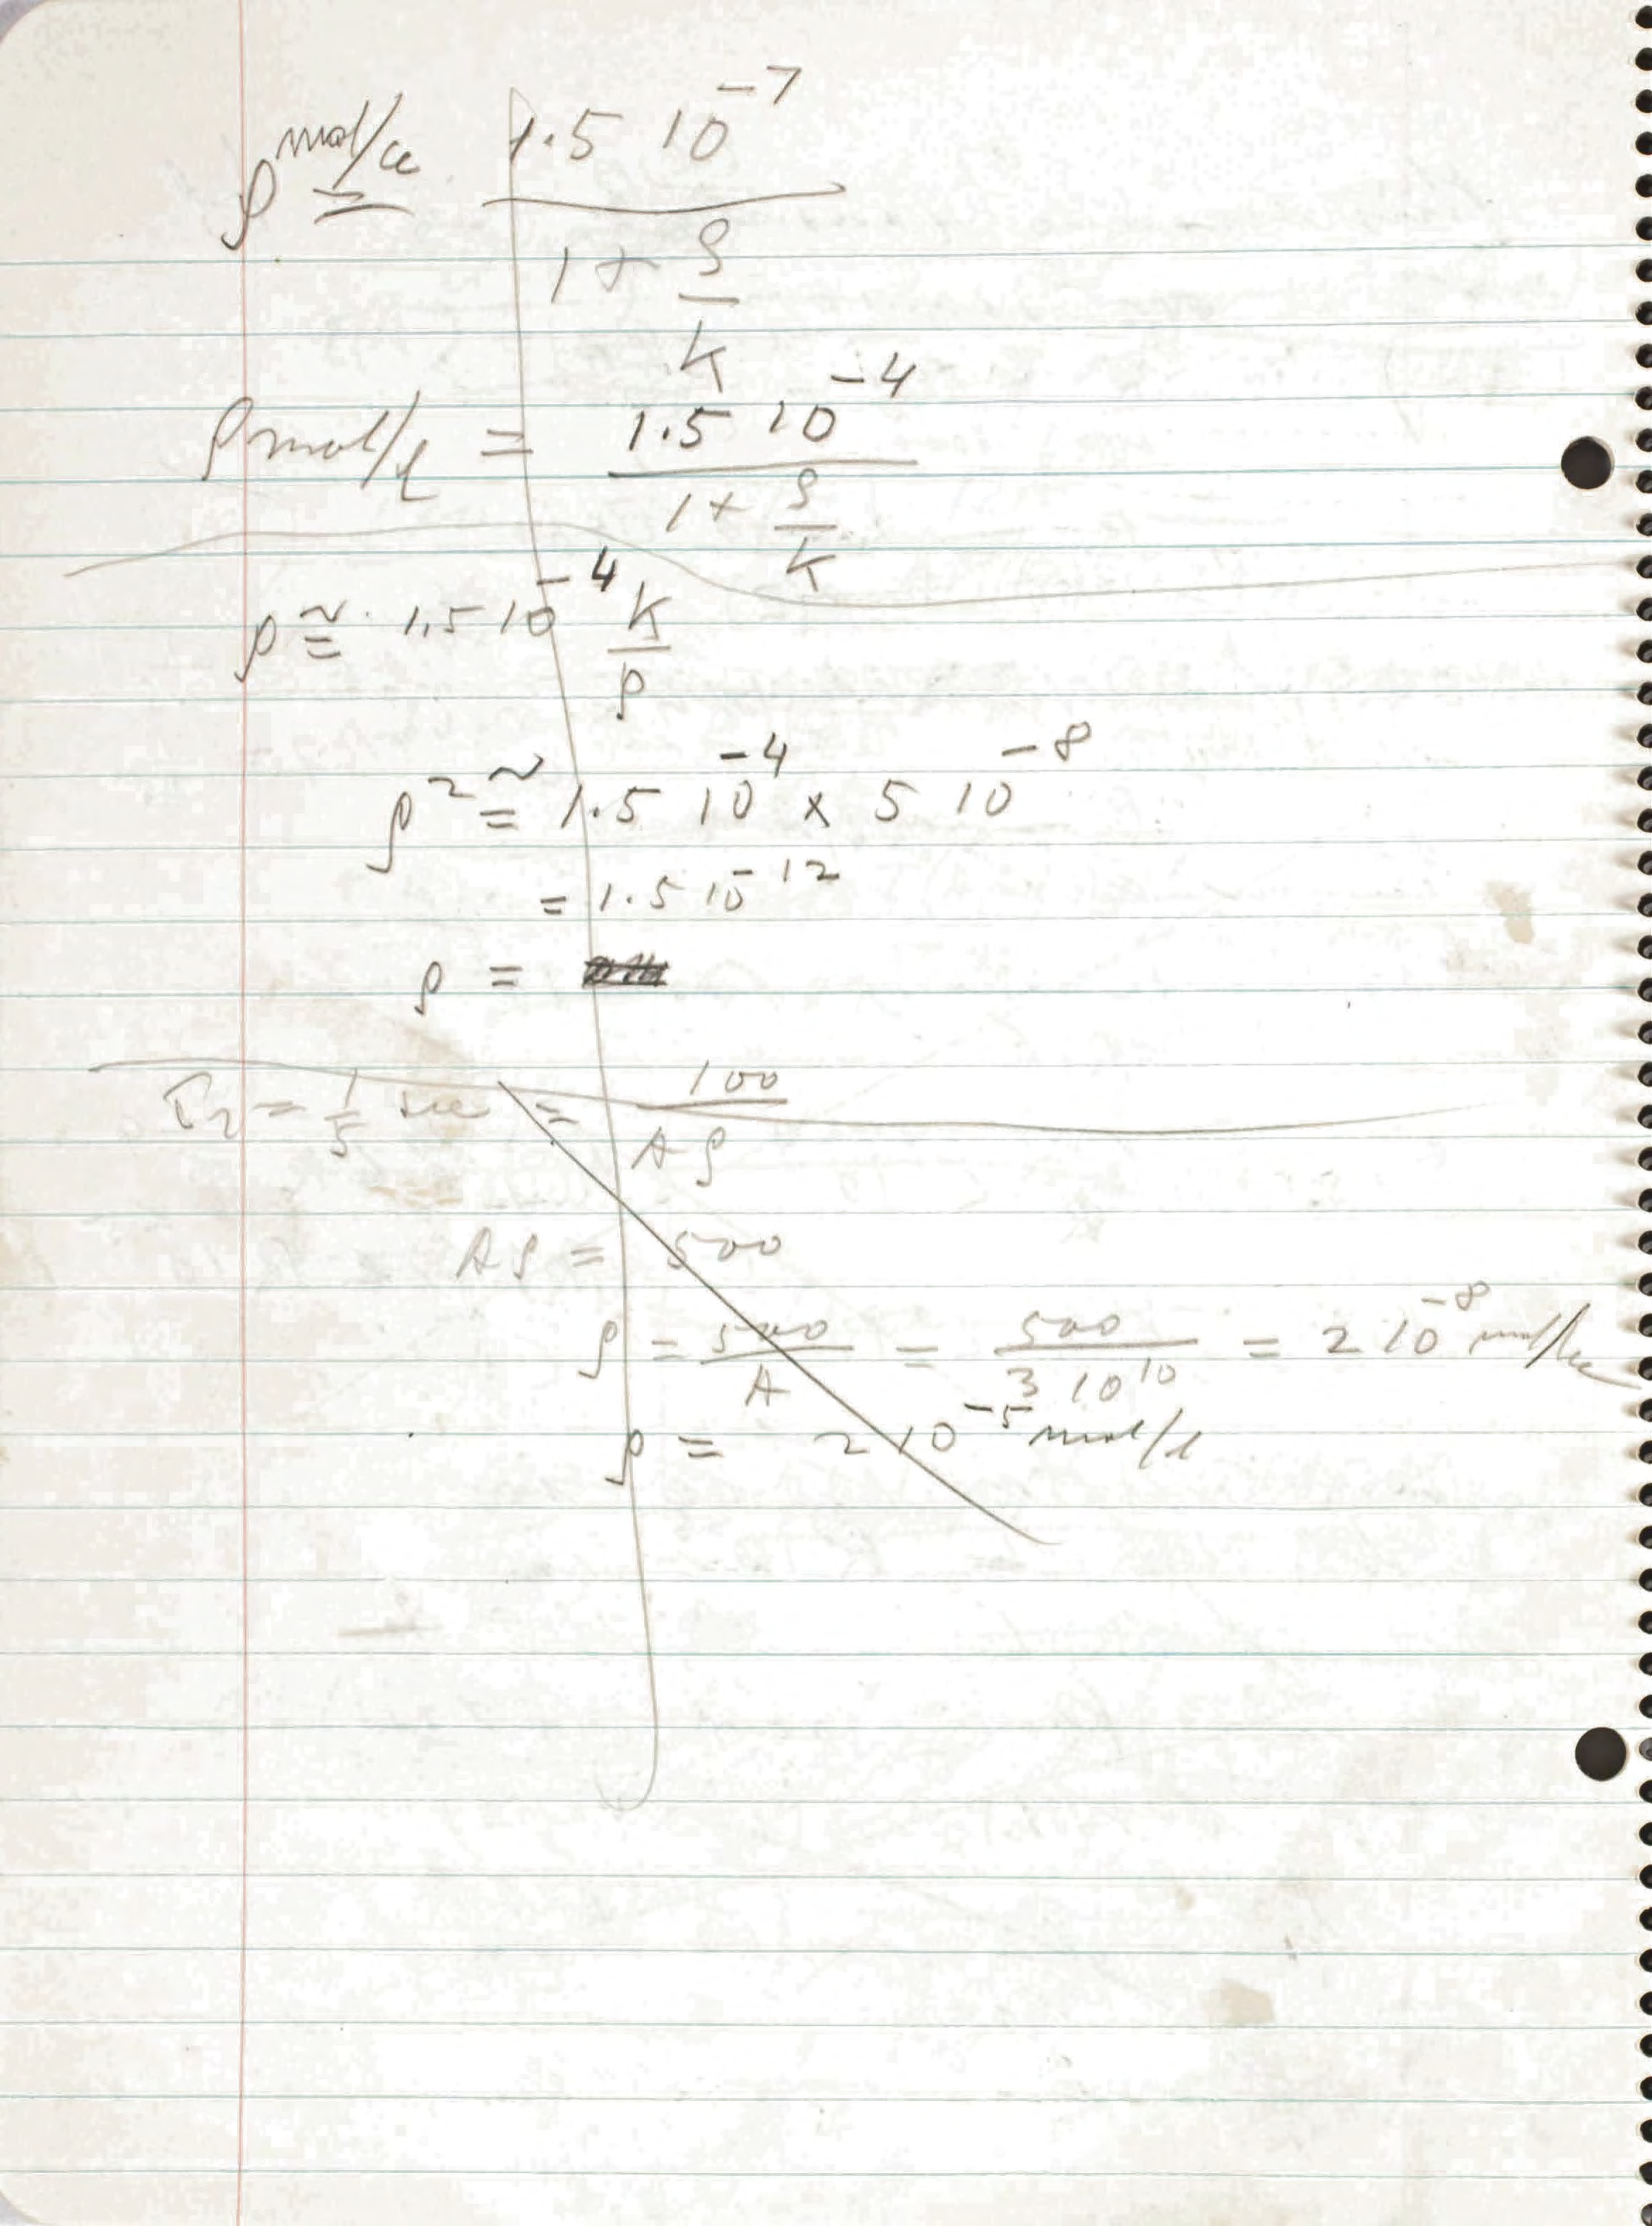 ρ mol/cc = 1.5 10⁻⁷ / (1 + ρ/K)
ρ mol/l = 1.5 10⁻⁴ / (1 + ρ/K)
ρ ≅ 1.5 10⁻⁴ K/ρ
ρ² ≅ 1.5 10⁻⁴ × 5 10⁻⁸
= 1.5 10⁻¹²
ρ =
τ₂ = 1/5 sec = 100 / Aρ
Aρ = 500
ρ = 500/A = 500 / 3 10¹⁰ = 2 10⁻⁸ mol/cc
ρ = 2 10⁻⁵ mol/l